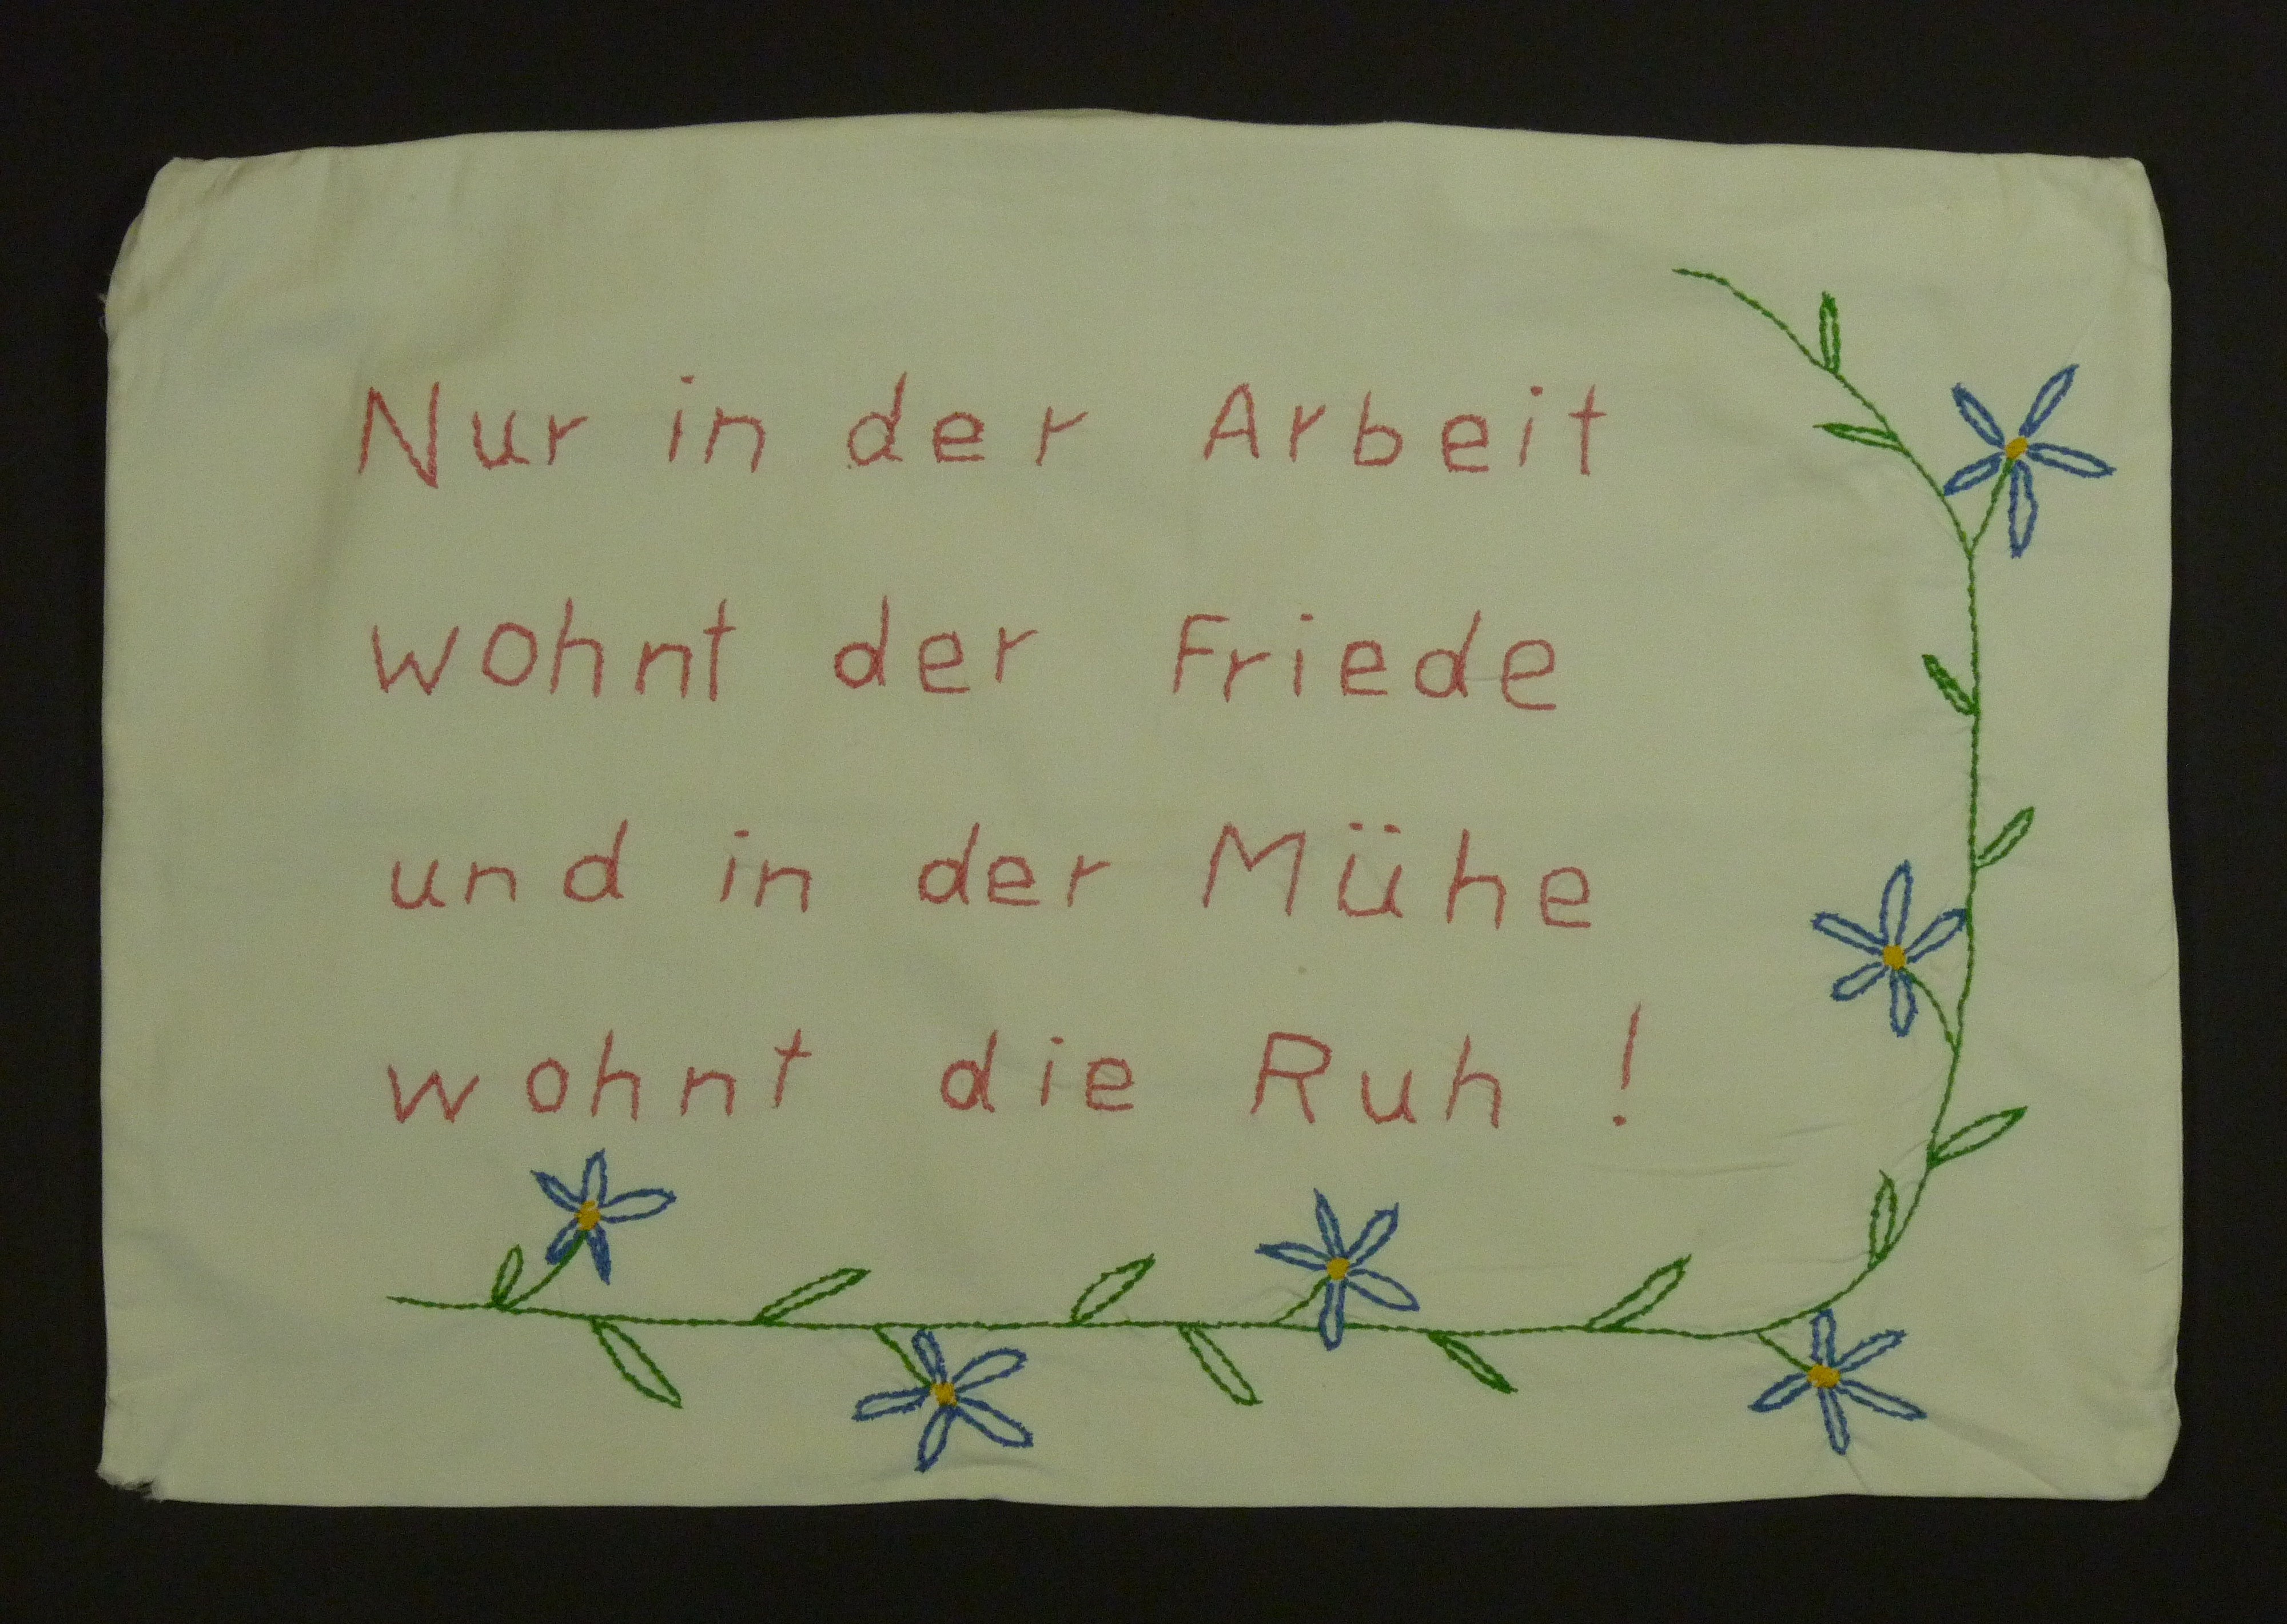 Nur in der Arbeit
wohnt der Friede
und in der Mühe
wohnt die Ruh !